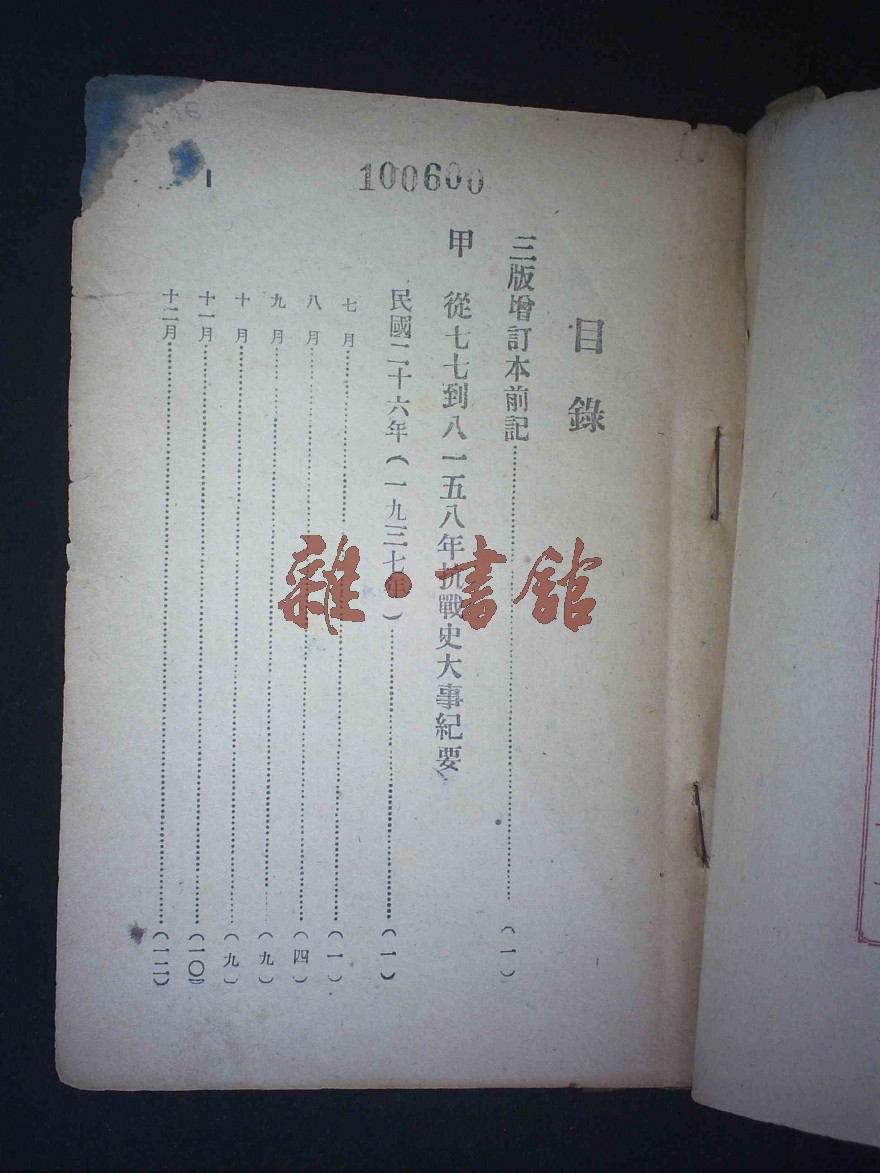 100600
1
目錄
三版增訂本前記……(一)
甲 從七七到八一五八年抗戰史大事紀要
民國二十六年(一九三七年)……(一)
七月……(一)
八月……(四)
九月……(九)
十月……(九)
十一月……(一〇)
十二月……(一二)
雜·書館